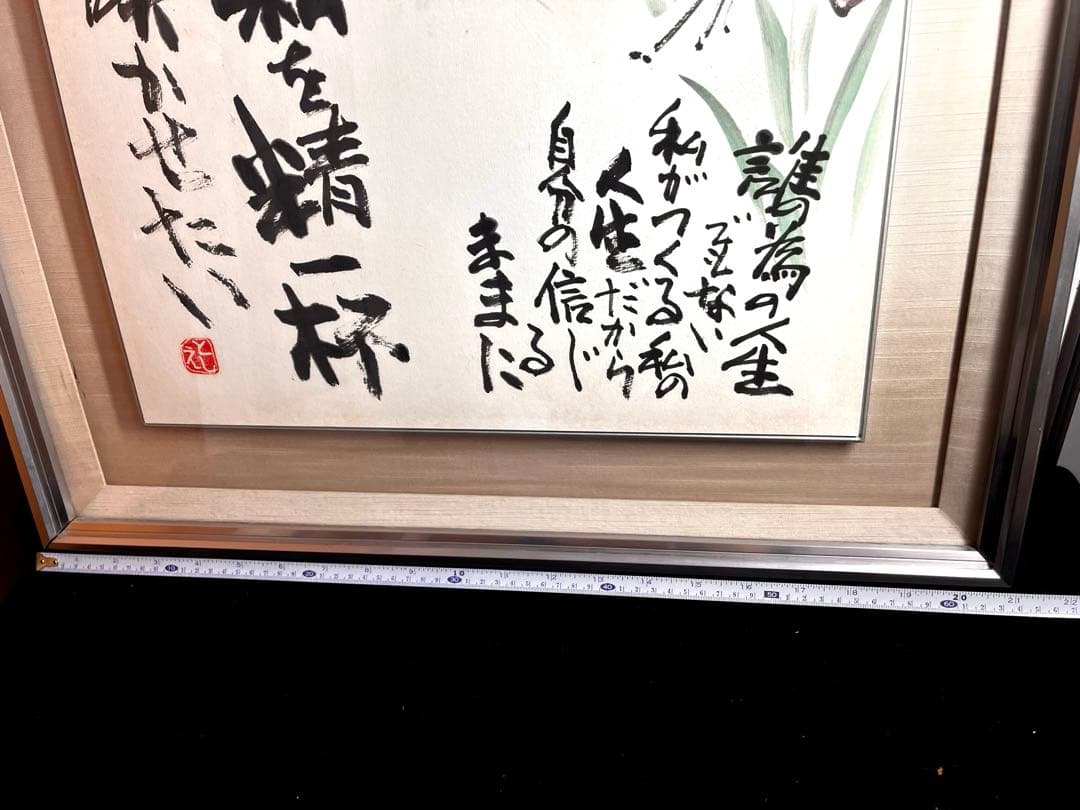 誰の為の人生
でもない
私がつくる私の
人生だから
自分の信じる
ままに
私を精一杯
咲かせたい
とし
10 20 30 40 50 60